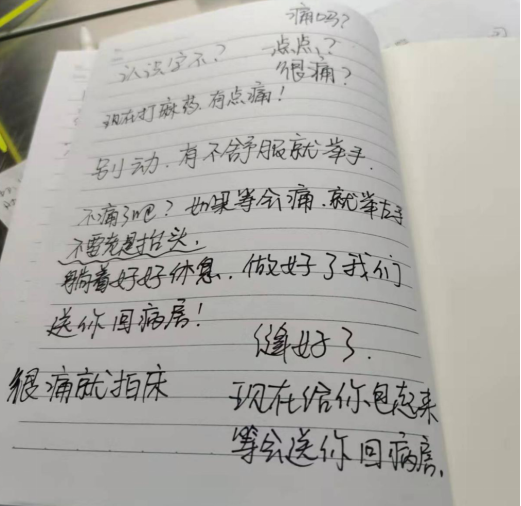 痛吗?
一点点?
很痛?
认识字不?
现在打麻药.有点痛!
别动.有不舒服就举手.
不痛了吧?如果等会痛.就举左手
不要老是抬头.
躺着好好休息.做好了我们
送你回病房!
缝好了.
很痛就拍床
现在给你包起来
等会送你回病房.